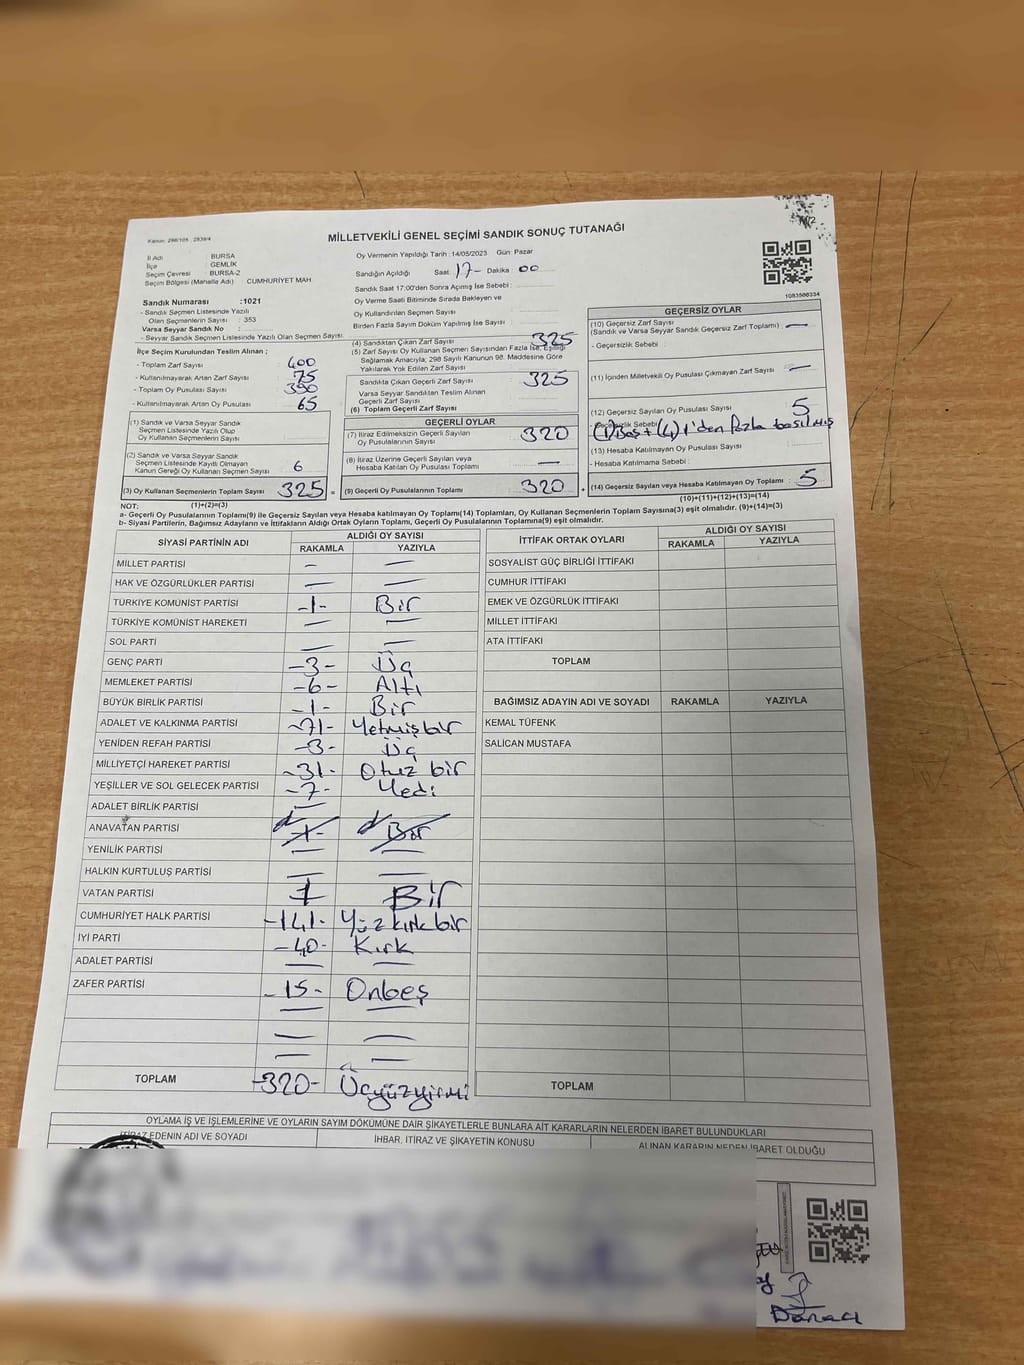 Kanun: 298/105 : 2839/4
MİLLETVEKİLİ GENEL SEÇİMİ SANDIK SONUÇ TUTANAĞI
İl Adı BURSA
İlçe GEMLİK
Seçim Çevresi : BURSA-2
Seçim Bölgesi (Mahalle Adı) CUMHURİYET MAH
Sandık Numarası :1021
- Sandık Seçmen Listesinde Yazılı
Olan Seçmenlerin Sayısı : 353
Varsa Seyyar Sandık No :
- Seyyar Sandık Seçmen Listesinde Yazılı Olan Seçmen Sayısı:
Oy Vermenin Yapıldığı Tarih : 14/05/2023 Gün: Pazar
Sandığın Açıldığı Saat: 17- Dakika: 00
Sandık Saat 17:00'den Sonra Açımış İse Sebebi :
Oy Verme Saati Bitiminde Sırada Bekleyen ve
Oy Kullandırılan Seçmen Sayısı
Birden Fazla Sayım Döküm Yapılmış İse Sayısı :
1083506334
İlçe Seçim Kurulundan Teslim Alınan ;
- Toplam Zarf Sayısı : 400
- Kullanılmayarak Artan Zarf Sayısı : 75
- Toplam Oy Pusulası Sayısı : 390
- Kullanılmayarak Artan Oy Pusulası : 65
(1) Sandık ve Varsa Seyyar Sandık
Seçmen Listesinde Yazılı Olup
Oy Kullanan Seçmenlerin Sayısı
(2) Sandık ve Varsa Seyyar Sandık
Seçmen Listesinde Kayıtlı Olmayan
Kanun Gereği Oy Kullanan Seçmen Sayısı 6
(3) Oy Kullanan Seçmenlerin Toplam Sayısı 325 =
(4) Sandıktan Çıkan Zarf Sayısı 325
(5) Zarf Sayısı Oy Kullanan Seçmen Sayısından Fazla İse, Eşitliği
Sağlamak Amacıyla, 298 Sayılı Kanunun 98. Maddesine Göre
Yakılarak Yok Edilen Zarf Sayısı
Sandıkta Çıkan Geçerli Zarf Sayısı 325
Varsa Seyyar Sandıktan Teslim Alınan
Geçerli Zarf Sayısı
(6) Toplam Geçerli Zarf Sayısı
GEÇERLİ OYLAR
(7) İtiraz Edilmeksizin Geçerli Sayılan
Oy Pusulalarının Sayısı 320
(8) İtiraz Üzerine Geçerli Sayılan veya
Hesaba Katılan Oy Pusulası Toplamı —
(9) Geçerli Oy Pusulalarının Toplamı 320 +
GEÇERSİZ OYLAR
(10) Geçersiz Zarf Sayısı
(Sandık ve Varsa Seyyar Sandık Geçersiz Zarf Toplamı) —
- Geçersizlik Sebebi
(11) İçinden Milletvekili Oy Pusulası Çıkmayan Zarf Sayısı : —
(12) Geçersiz Sayılan Oy Pusulası Sayısı 5
- Geçersizlik Sebebi
(1)Boş+(4) 1'den fazla basılmış
(13) Hesaba Katılmayan Oy Pusulası Sayısı
- Hesaba Katılmama Sebebi :
(14) Geçersiz Sayılan veya Hesaba Katılmayan Oy Toplamı : 5
NOT: (1)+(2)=(3) (10)+(11)+(12)+(13)=(14)
a- Geçerli Oy Pusulalarının Toplamı(9) ile Geçersiz Sayılan veya Hesaba katılmayan Oy Toplamı(14) Toplamları, Oy Kullanan Seçmenlerin Toplam Sayısına(3) eşit olmalıdır. (9)+(14)=(3)
b- Siyasi Partilerin, Bağımsız Adayların ve İttifakların Aldığı Ortak Oyların Toplamı, Geçerli Oy Pusulalarının Toplamına(9) eşit olmalıdır.
SİYASİ PARTİNİN ADI ALDIĞI OY SAYISI
RAKAMLA YAZIYLA
MİLLET PARTİSİ — —
HAK VE ÖZGÜRLÜKLER PARTİSİ — —
TÜRKİYE KOMÜNİST PARTİSİ -1- Bir
TÜRKİYE KOMÜNİST HAREKETİ — —
SOL PARTİ — —
GENÇ PARTİ -3- Üç
MEMLEKET PARTİSİ -6- Altı
BÜYÜK BİRLİK PARTİSİ -1- Bir
ADALET VE KALKINMA PARTİSİ -71- Yetmişbir
YENİDEN REFAH PARTİSİ -3- Üç
MİLLİYETÇİ HAREKET PARTİSİ -31- Otuz bir
YEŞİLLER VE SOL GELECEK PARTİSİ -7- Yedi
ADALET BİRLİK PARTİSİ —
ANAVATAN PARTİSİ -1- Bir
YENİLİK PARTİSİ — —
HALKIN KURTULUŞ PARTİSİ — —
VATAN PARTİSİ 1 Bir
CUMHURİYET HALK PARTİSİ -141- Yüz kırk bir
İYİ PARTİ -40- Kırk
ADALET PARTİSİ — —
ZAFER PARTİSİ -15- Onbeş
— —
— —
— —
TOPLAM -320- Üçyüzyirmi
İTTİFAK ORTAK OYLARI ALDIĞI OY SAYISI
RAKAMLA YAZIYLA
SOSYALİST GÜÇ BİRLİĞİ İTTİFAKI
CUMHUR İTTİFAKI
EMEK VE ÖZGÜRLÜK İTTİFAKI
MİLLET İTTİFAKI
ATA İTTİFAKI
TOPLAM
BAĞIMSIZ ADAYIN ADI VE SOYADI RAKAMLA YAZIYLA
KEMAL TÜFENK
SALİCAN MUSTAFA
TOPLAM
OYLAMA İŞ VE İŞLEMLERİNE VE OYLARIN SAYIM DÖKÜMÜNE DAİR ŞİKAYETLERLE BUNLARA AİT KARARLARIN NELERDEN İBARET BULUNDUKLARI
İTİRAZ EDENİN ADI VE SOYADI İHBAR, İTİRAZ VE ŞİKAYETİN KONUSU ALINAN KARARIN NEDEN İBARET OLDUĞU